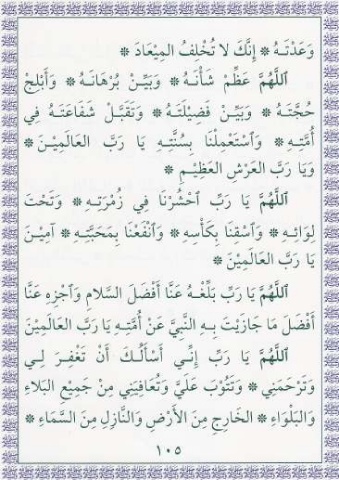 وَعَدْتَهُ * إِنَّكَ لَا تُخْلِفُ المِيْعَادَ *
اَللَّهُمَّ عَظِّمْ شَأْنَهُ * وَبَيِّنْ بُرْهَانَهُ * وَأَبْلِجْ
حُجَّتَهُ * وَبَيِّنْ فَضِيْلَتَهُ * وَتَقَبَّلْ شَفَاعَتَهُ فِي
أُمَّتِهِ * وَاسْتَعْمِلْنَا بِسُنَّتِهِ يَا رَبَّ العَالَمِيْنَ *
وَيَا رَبَّ العَرْشِ العَظِيْمِ *
اَللَّهُمَّ يَا رَبِّ احْشُرْنَا فِي زُمْرَتِهِ * وَتَحْتَ
لِوَائِهِ * وَاسْقِنَا بِكَأْسِهِ * وَانْفَعْنَا بِمَحَبَّتِهِ * آمِيْنَ
يَا رَبَّ العَالَمِيْنَ *
اَللَّهُمَّ يَا رَبِّ بَلِّغْهُ عَنَّا أَفْضَلَ السَّلَامِ وَاجْزِهِ عَنَّا
أَفْضَلَ مَا جَازَيْتَ بِهِ النَّبِيَّ عَنْ أُمَّتِهِ يَا رَبَّ العَالَمِيْنَ
اَللَّهُمَّ يَا رَبِّ إِنِّي أَسْأَلُكَ أَنْ تَغْفِرَ لِي
وَتَرْحَمَنِي * وَتَتُوْبَ عَلَيَّ وَتُعَافِيَنِي مِنْ جَمِيْعِ البَلَاءِ
وَالبَلْوَاءِ * الخَارِجِ مِنَ الأَرْضِ وَالنَّازِلِ مِنَ السَّمَاءِ *
١٠٥